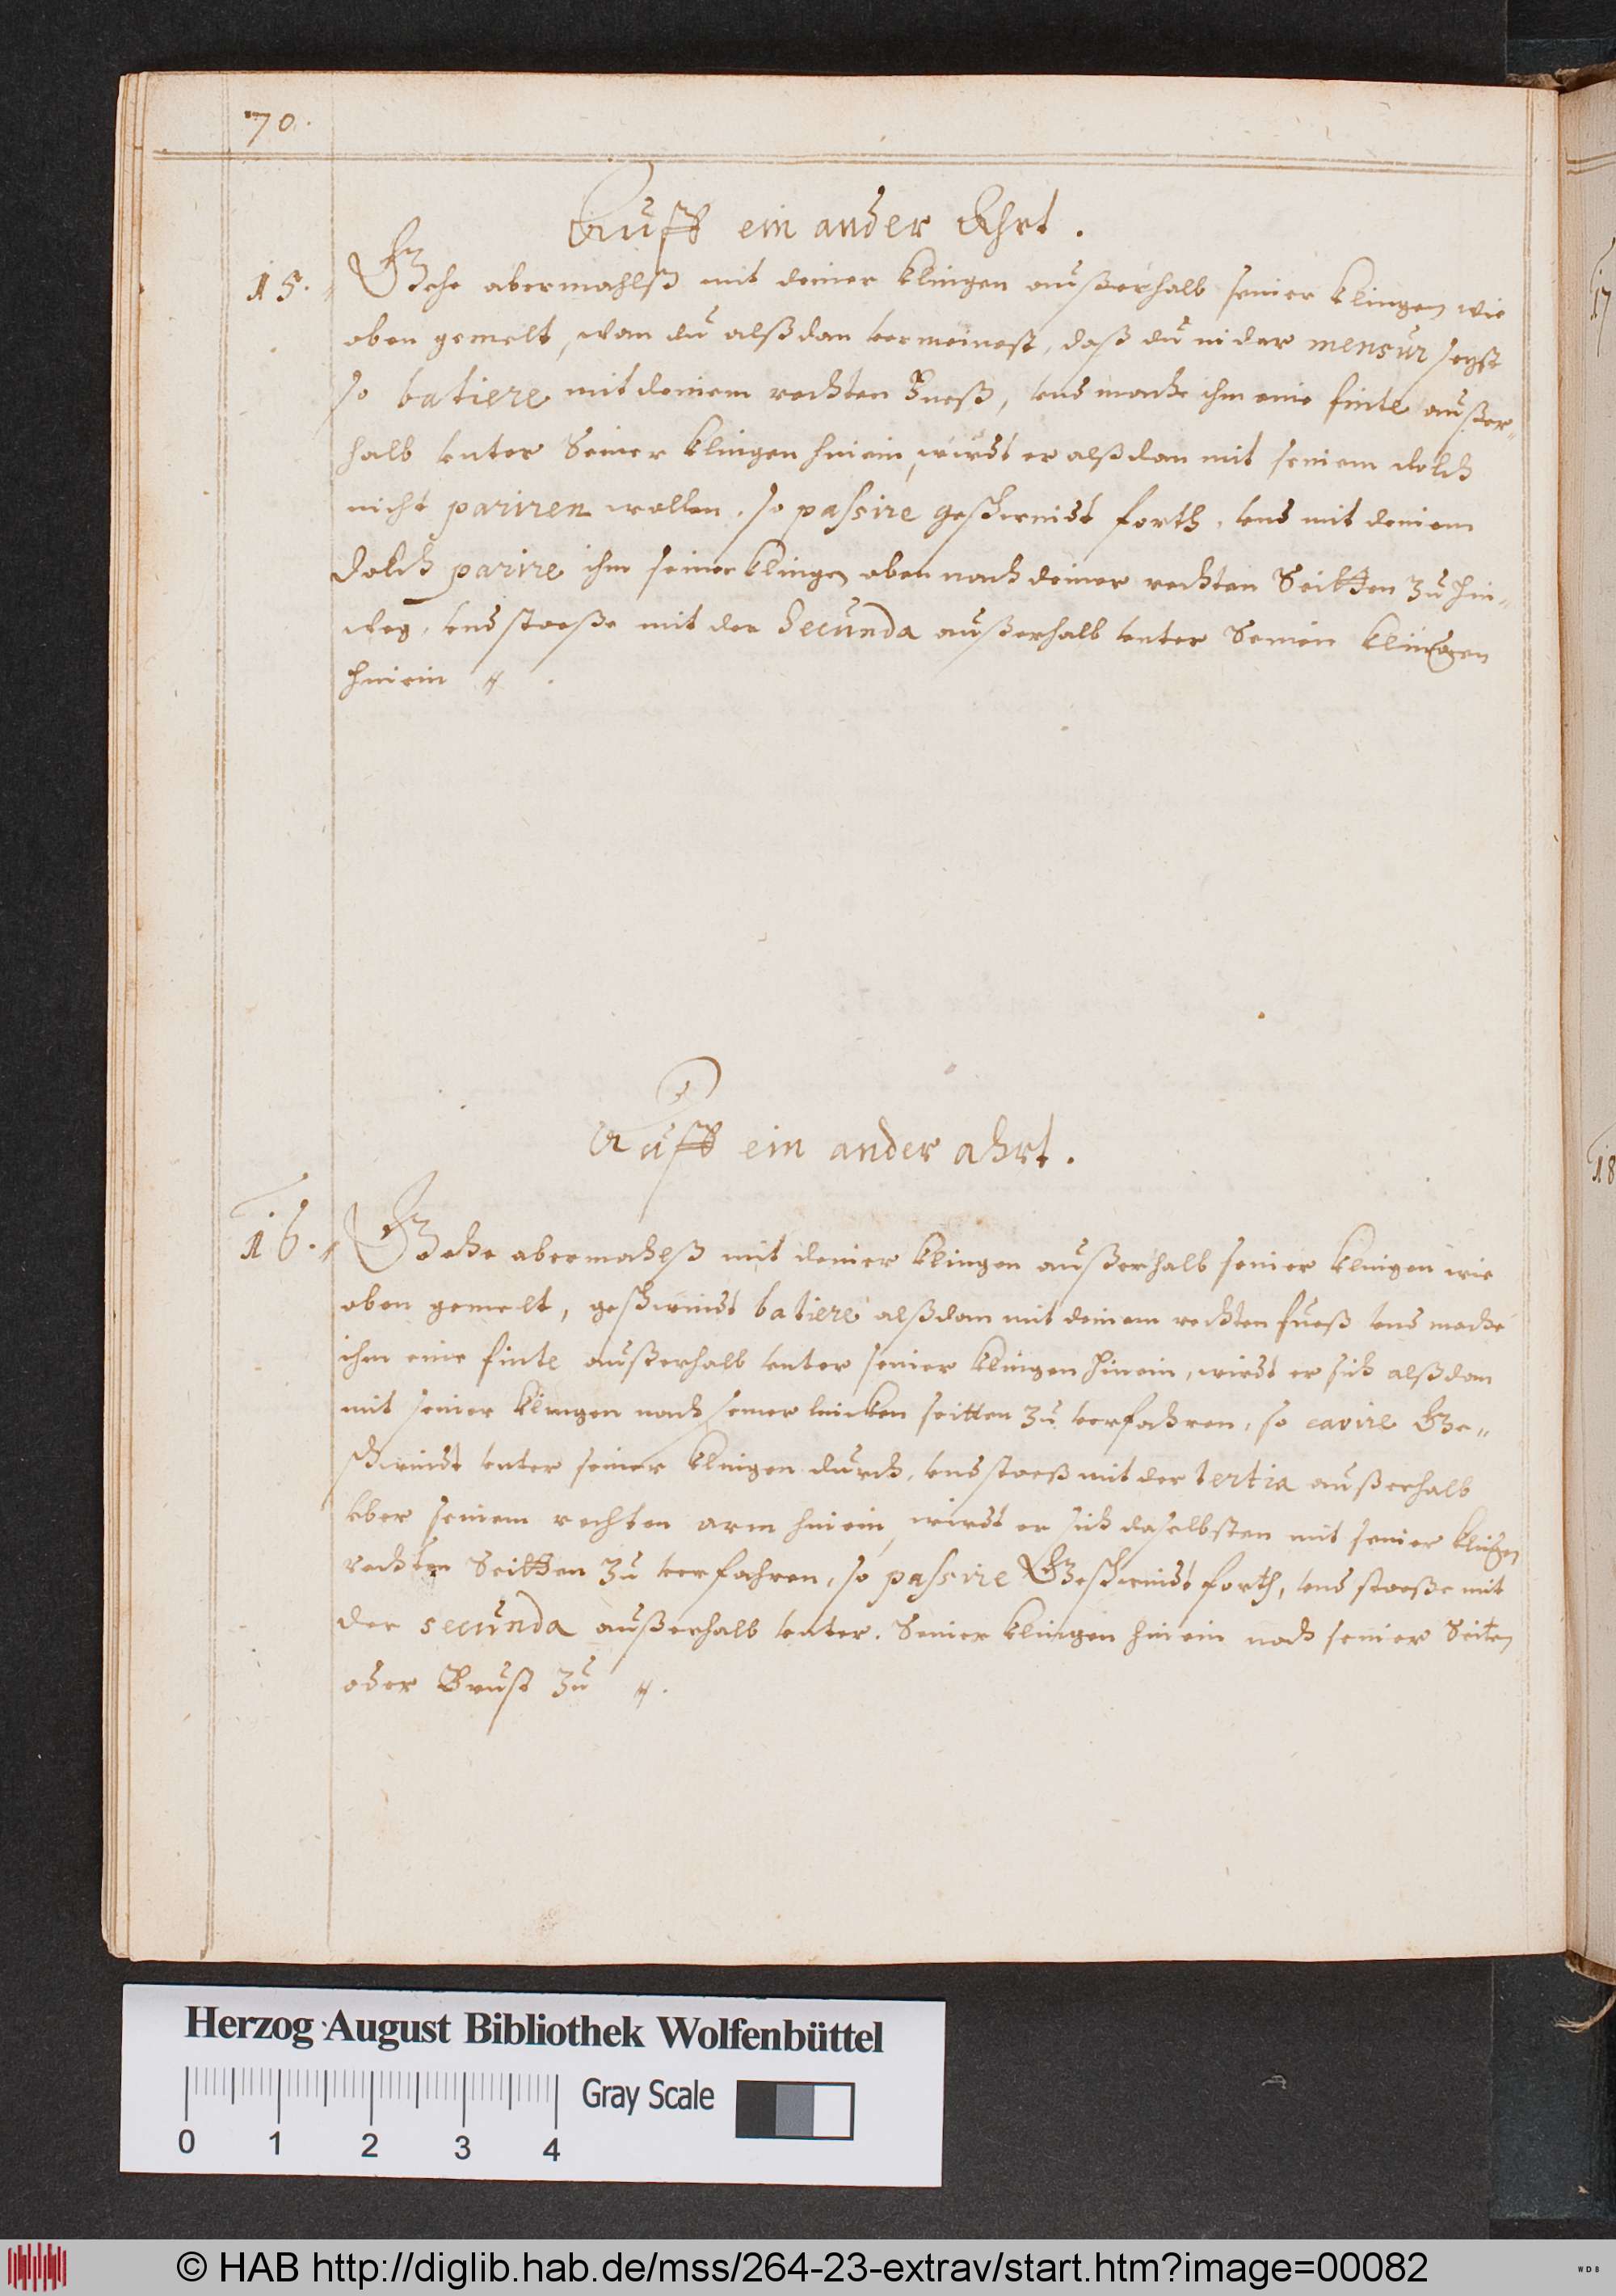 70.
Auff ein ander Ahrt.
15. Gehe abermahlß mit deiner klingen außerhalb seiner klingen wie
oben gemelt, wan du alßdan vermeinest, daß du in der mensur seyst
so batiere mit deinem rechten Fueß, vnd mache ihm eine finte außer„
halb vnter Seiner klingen hinein, wirdt er alßdan mit seinem dolch
nicht pariren wollen, so passire geschwindt forth, vnd mit deinem
dolch parire ihm seiner klingen oben nach deiner rechten Seitten zu hin„
weg, vnd stoeße mit der Secunda außerhalb vnter Seinen klingen
hinein
Auff ein ander ahrt.
16. Gehe abermahlß mit deiner klingen außerhalb seiner klingen wie
oben gemelt, geschwindt batiere alßdan mit deinem rechten fueß vnd mache
ihm eine finte außerhalb vnter seiner klingen hinein, wirdt er sich alßdan
mit seiner klingen nach seiner lincken seitten zu verfahren, so cavire Ge„
schwindt vnter seiner klingen durch, vnd stoeß mit der tertia außerhalb
vber seinem rechten arm hinein, wirdt er sich daselbsten mit seiner klingen
rechten Seitten zu verfahren, so passire Geschwindt forth, vnd stoeße mit
der secunda außerhalb vnter. Seiner klingen hinein nach seiner Seiten
oder Brust zu
17
18
Herzog August Bibliothek Wolfenbüttel
Gray Scale
0 1 2 3 4
© HAB http://diglib.hab.de/mss/264-23-extrav/start.htm?image=00082
WDB